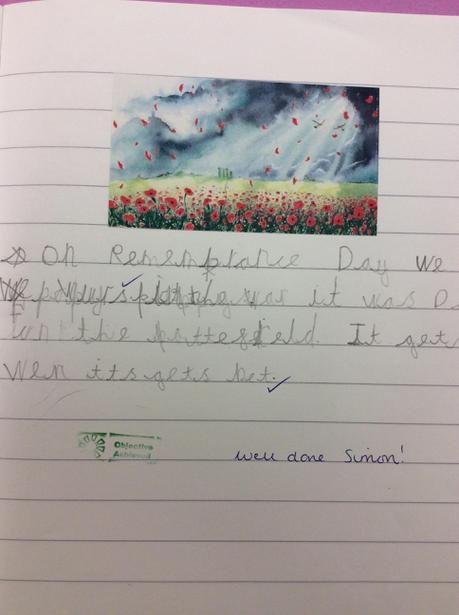 On Remembrance Day we
in the war it was D
on the battesfield. It get
Wen itts gets bet.
Objective
Achieved
well done Simon!